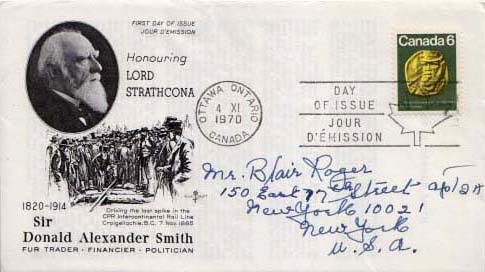 FIRST DAY OF ISSUE
JOUR D'ÉMISSION
Honouring
LORD
STRATHCONA
OTTAWA ONTARIO
4 XI
1970
CANADA
DAY
OF ISSUE
JOUR
D'ÉMISSION
Canada 6
Mr. Blair Roger
150 East 77th Street apt 2A
New York 10021
New York
U.S.A.
Driving the last spike in the
CPR Intercontinental Rail Line
Craigellachie, B.C. 7 Nov. 1885
1820-1914
Sir
Donald Alexander Smith
FUR TRADER - FINANCIER - POLITICIAN